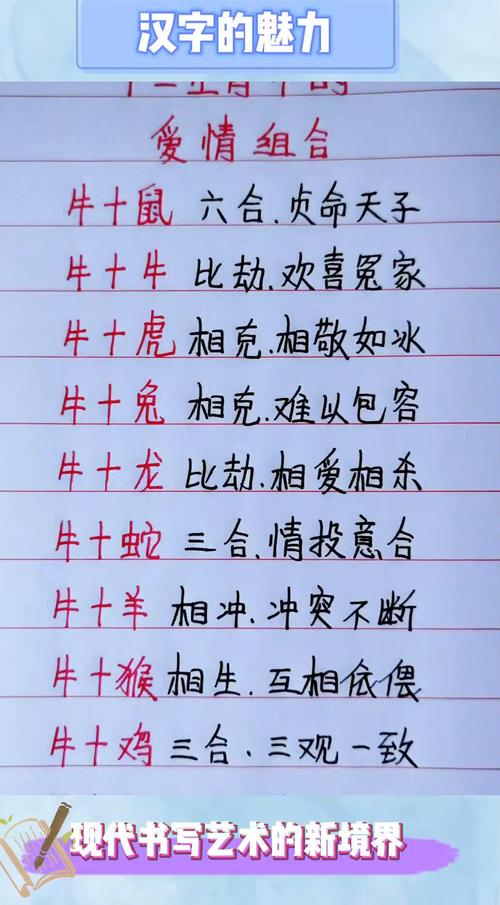 汉字的魅力
十二生肖中的
爱情组合
牛十鼠 六合.贞命天子
牛十牛 比劫.欢喜冤家
牛十虎 相克.相敬如冰
牛十兔 相克.难以包容
牛十龙 比劫.相爱相杀
牛十蛇 三合.情投意合
牛十羊 相冲.冲突不断
牛十猴 相生.互相依偎
牛十鸡 三合.三观一致
现代书写艺术的新境界